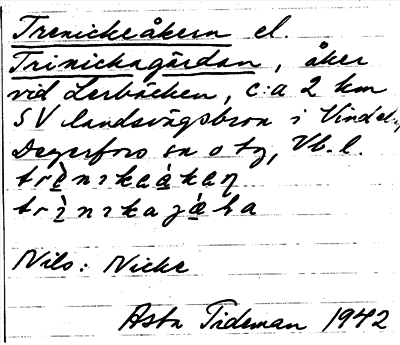 Trenickeåkern el.
Trinickagärdan, åker
vid Lerbäcken, c:a 2 km
SV landsvägsbron i Vindel-,
Degerfors sn o tg, Vb. l.
Nils: Nicke
Asta Tideman 1942